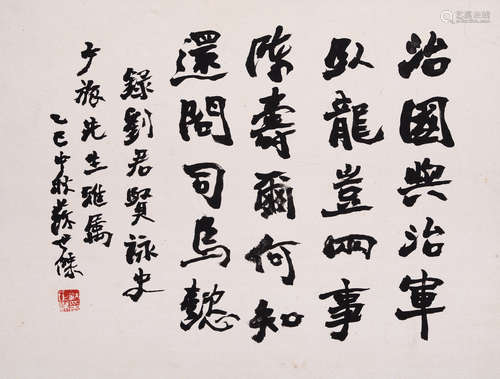 治國與治軍
臥龍豈兩事
陳壽爾何知
還問司馬懿
錄劉君賢詠史
少旅先生雅屬
乙巳中秋蘇世傑